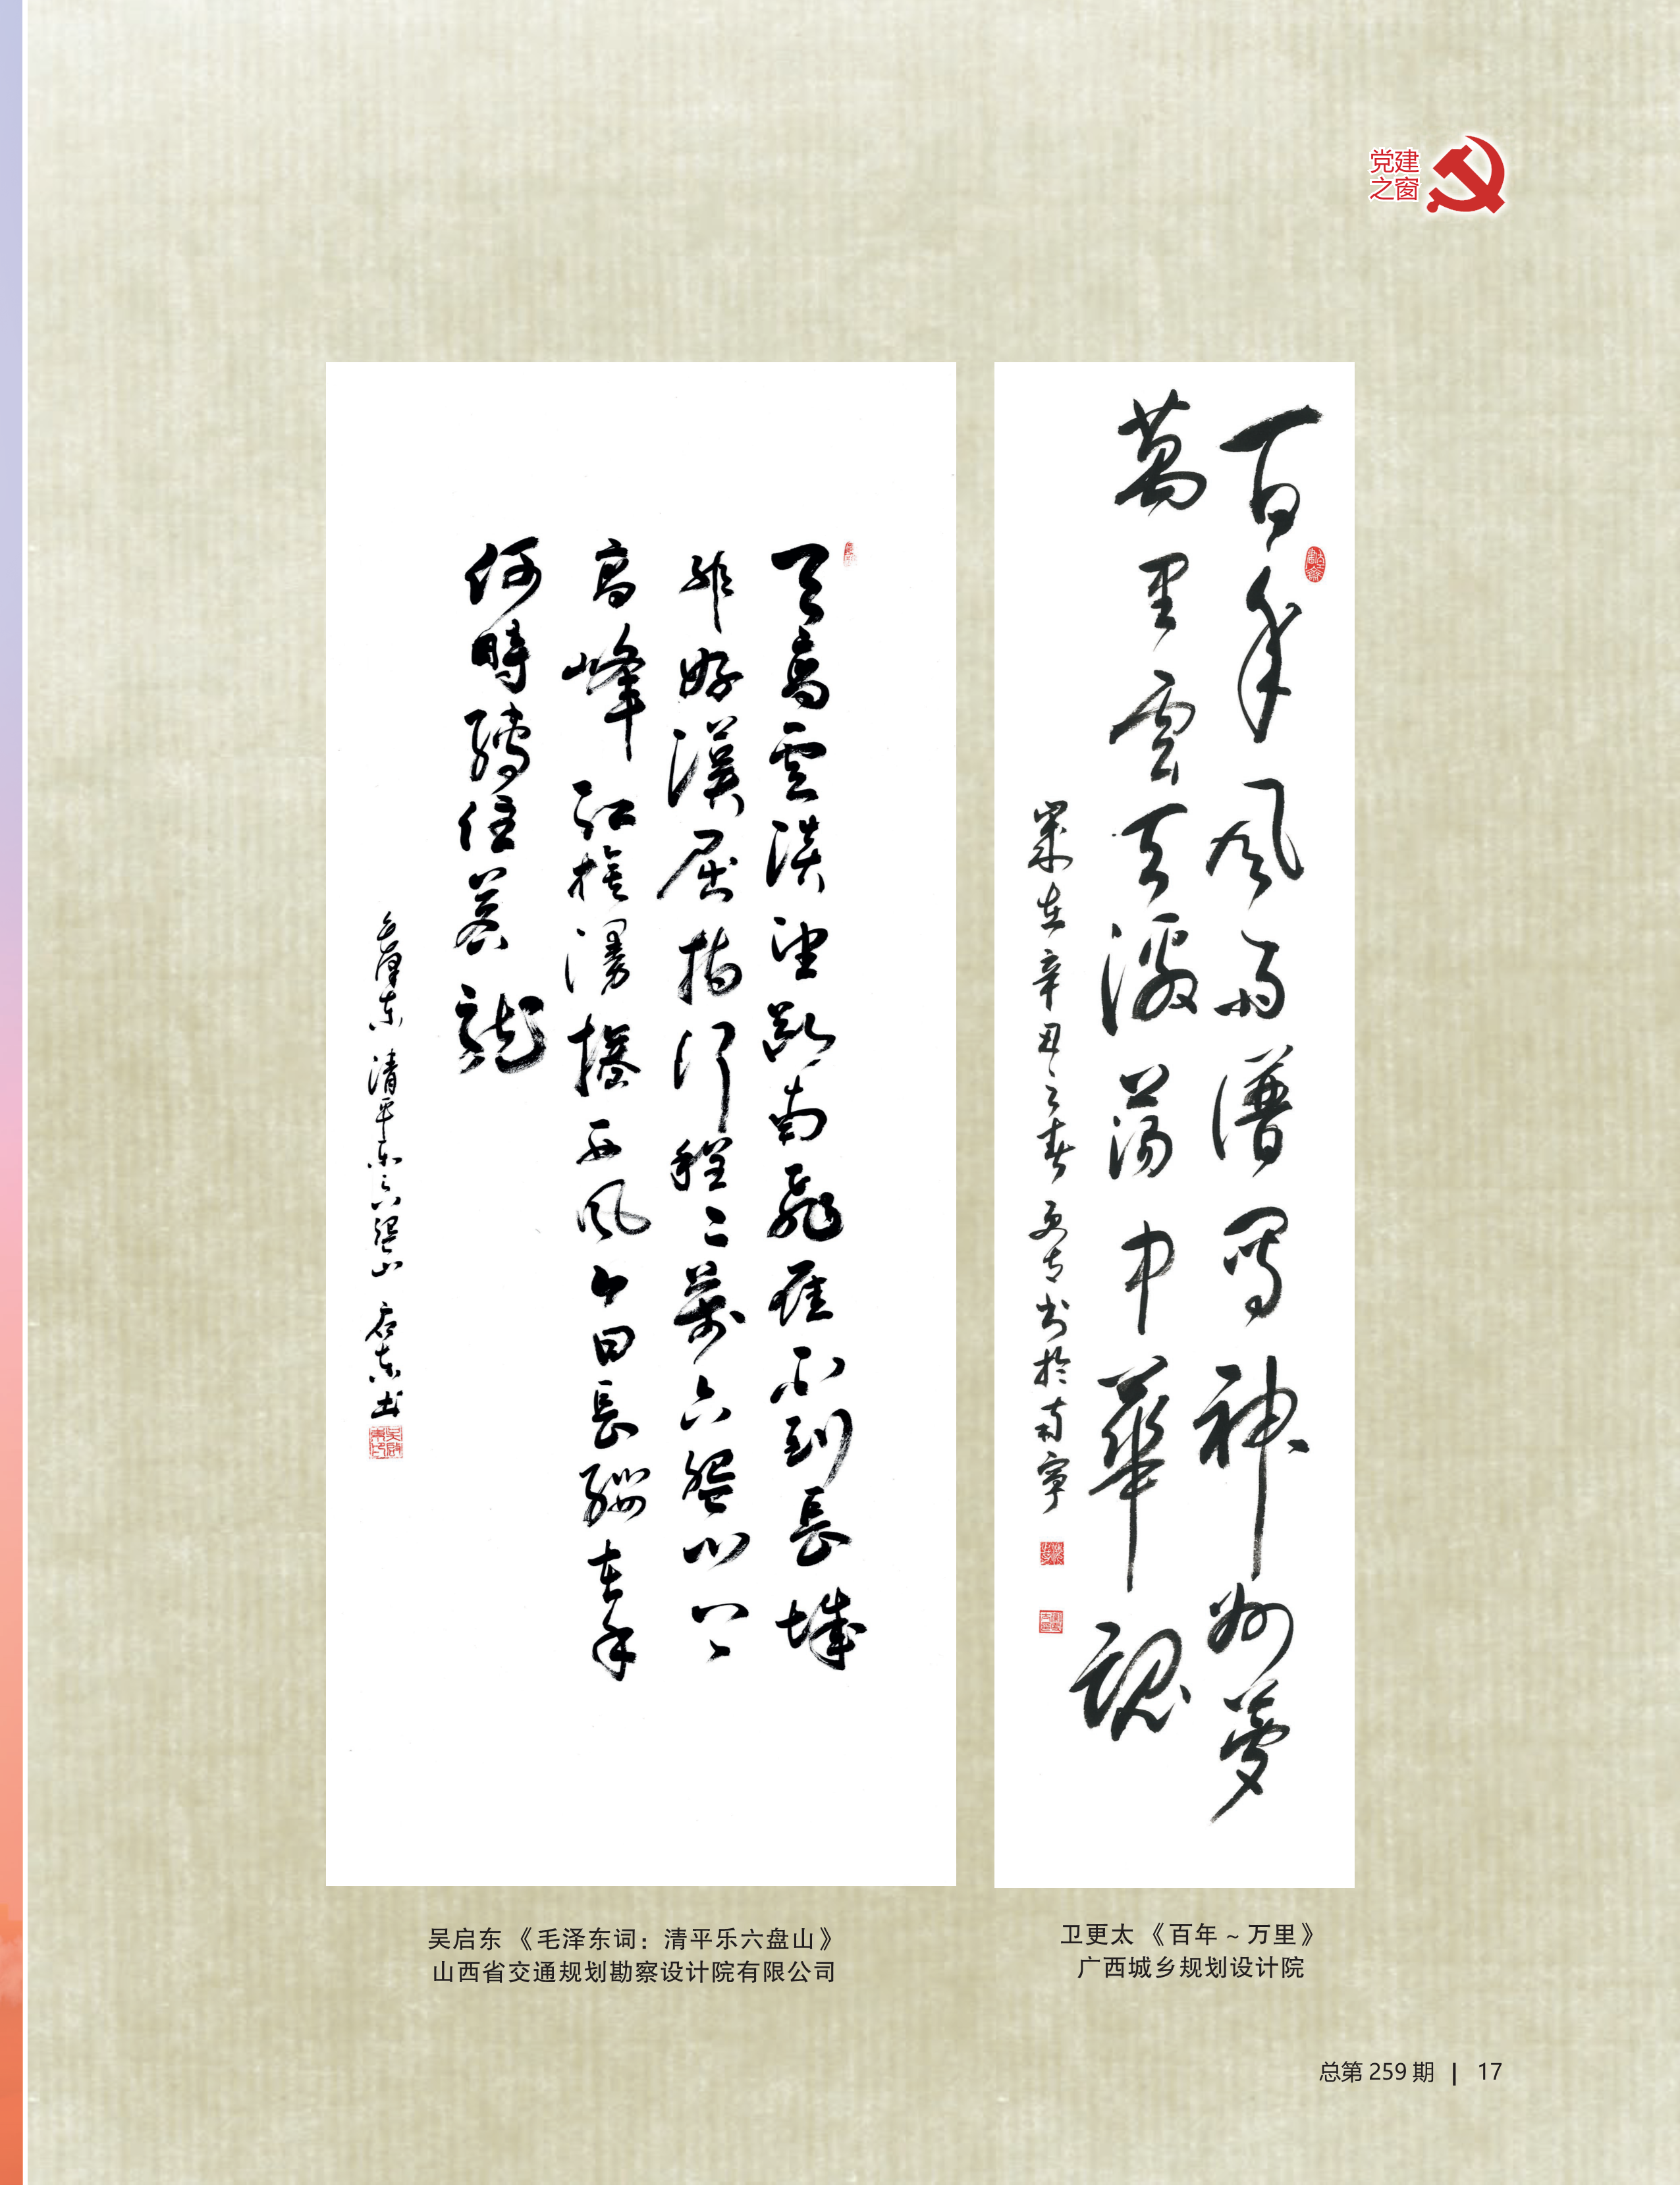 党建
之窗
天高雲淡望斷南飛雁不到長城
非好漢屈指行程二萬六盤山上
高峰紅旗漫捲西風今日長纓在手
何時縛住蒼龍
毛澤東清平樂六盤山 启东书
吴启东《毛泽东词：清平乐六盘山》
山西省交通规划勘察设计院有限公司
百年風雨譜寫神州夢
萬里雲天激蕩中華魂
歲在辛丑之春更太书於南寧
卫更太《百年~万里》
广西城乡规划设计院
总第 259 期 | 17